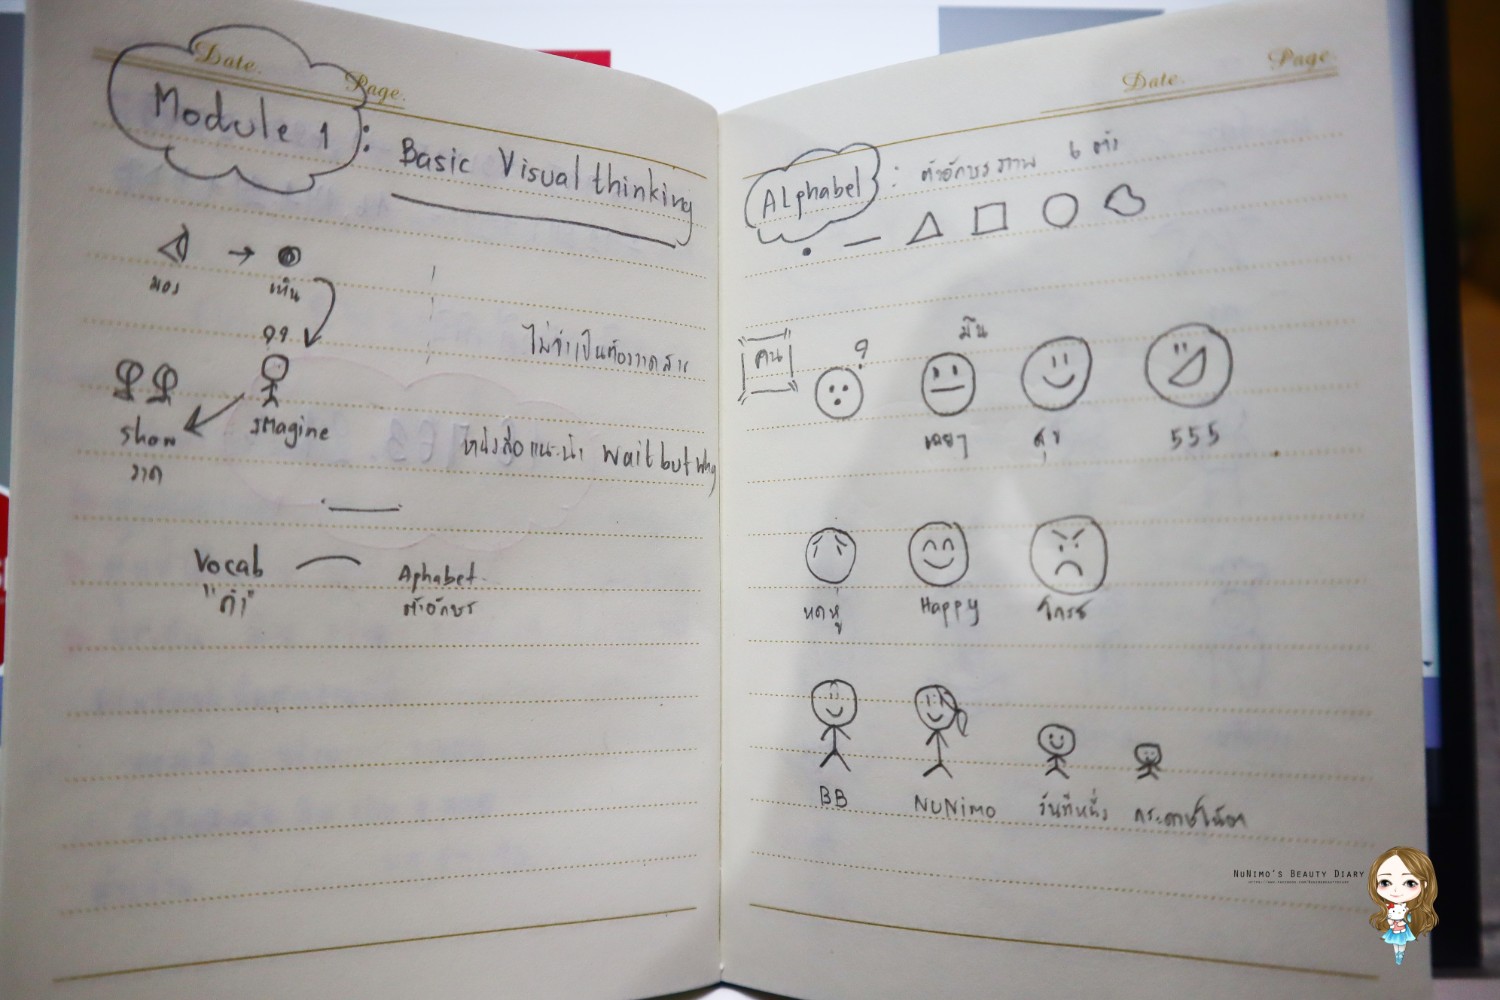 Date.
Page.
Module 1 : Basic Visual thinking
มอง
เห็น
ไม่จำเป็นต้องวาดสวย
Imagine
Show
วาด
หนังสือแนะนำ wait but why
Vocab
Aphabet
"คำ"
ตัวอักษร
Date.
Page.
ALphabel : ตัวอักษรภาพ 6 ตัว
คน
?
มึน
เฉยๆ
สุข
555
หดหู่
Happy
โกรธ
BB
NUNimo
วันที่หนึ่ง
NuNimo's Beauty Diary